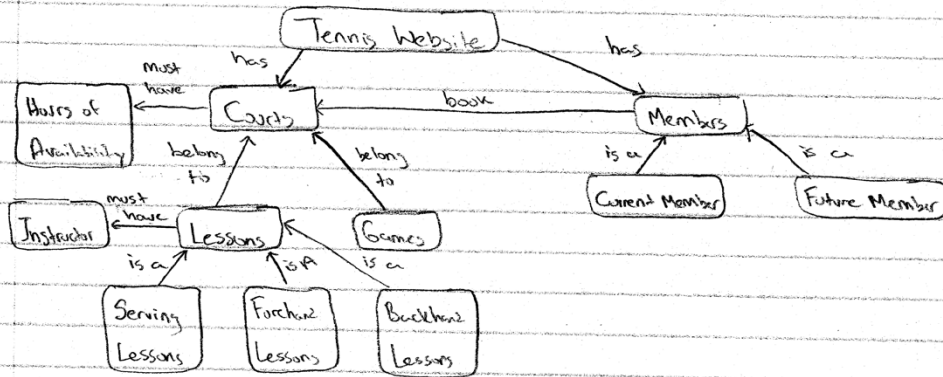 Tennis Website
has
has
must
have
Hours of
Availability
Courts
book
Members
belong
to
belong
to
is a
is a
Current Member
Future Member
must
have
Instructor
Lessons
Games
is a
is A
is a
Serving
Lessons
Forehand
Lessons
Backhand
Lessons